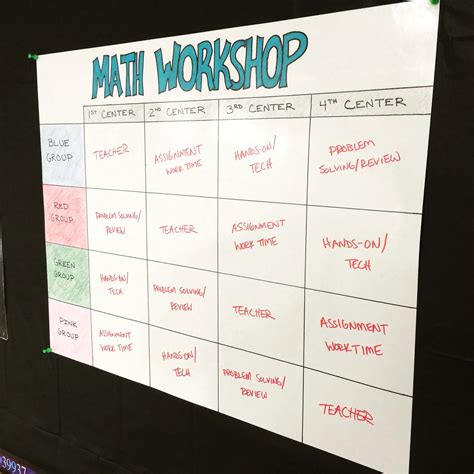 MATH WORKSHOP
1ST CENTER 2ND CENTER 3RD CENTER 4TH CENTER
BLUE
GROUP
TEACHER
ASSIGNMENT
WORK TIME
HANDS-ON/
TECH
PROBLEM
SOLVING/REVIEW
RED
GROUP
PROBLEM SOLVING/
REVIEW
TEACHER
ASSIGNMENT
WORK TIME
HANDS-ON/
TECH
GREEN
GROUP
HANDS-ON/
TECH
PROBLEM SOLVING/
REVIEW
TEACHER
ASSIGNMENT
WORK TIME
PINK
GROUP
ASSIGNMENT
WORK TIME
HANDS-ON/
TECH
PROBLEM SOLVING/
REVIEW
TEACHER
39937